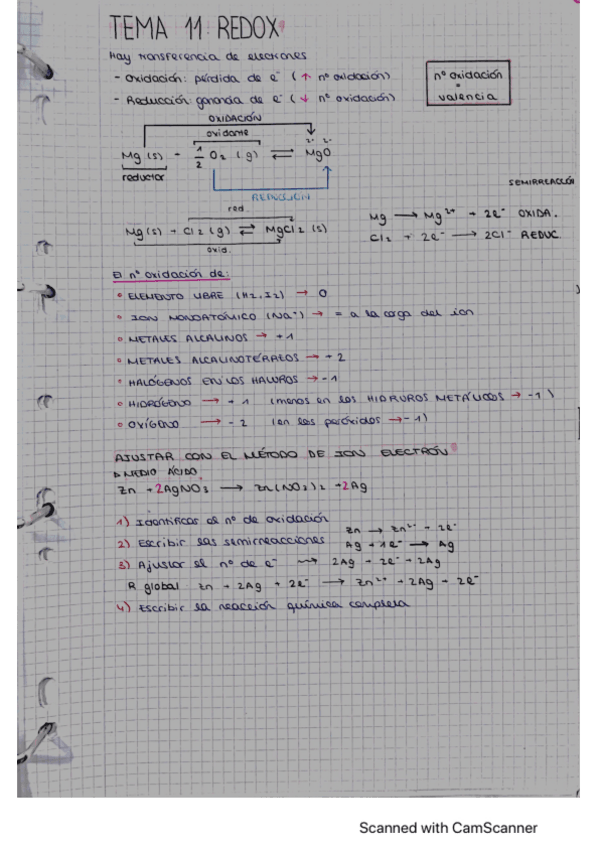 TEMA 11: REDOX
Hay transferencia de electrones
- Oxidación: pérdida de e⁻ (↑ nº oxidación)
- Reducción: ganancia de e⁻ (↓ nº oxidación)
nº oxidación
=
valencia
OXIDACIÓN
oxidante
2+ 2-
Mg(s) + 1/2 O₂ (g) ⇌ MgO
reductor
REDUCCIÓN
SEMIRREACCIÓN
red.
Mg(s) + Cl₂ (g) ⇌ MgCl₂ (s)
oxid.
Mg → Mg²⁺ + 2e⁻ OXIDA.
Cl₂ + 2e⁻ → 2Cl⁻ REDUC.
El nº oxidación de:
• ELEMENTO LIBRE (H₂, I₂) → 0
• ION MONOATÓMICO (Na⁺) → = a la carga del ion
• METALES ALCALINOS → +1
• METALES ALCALINOTÉRREOS → +2
• HALÓGENOS EN LOS HALUROS → -1
• HIDRÓGENO → +1 (menos en los HIDRUROS METÁLICOS → -1)
• OXÍGENO → -2 (en los peróxidos → -1)
AJUSTAR CON EL MÉTODO DE ION ELECTRÓN
MEDIO ÁCIDO
Zn + 2AgNO₃ → Zn(NO₃)₂ + 2Ag
1) Identificar el nº de oxidación
2) Escribir las semirreacciones
Zn → Zn²⁺ + 2e⁻
Ag + 1e⁻ → Ag
3) Ajustar el nº de e⁻ → 2Ag + 2e⁻ → 2Ag
R global Zn + 2Ag + 2e⁻ → Zn²⁺ + 2Ag + 2e⁻
4) Escribir la reacción química completa
Scanned with CamScanner